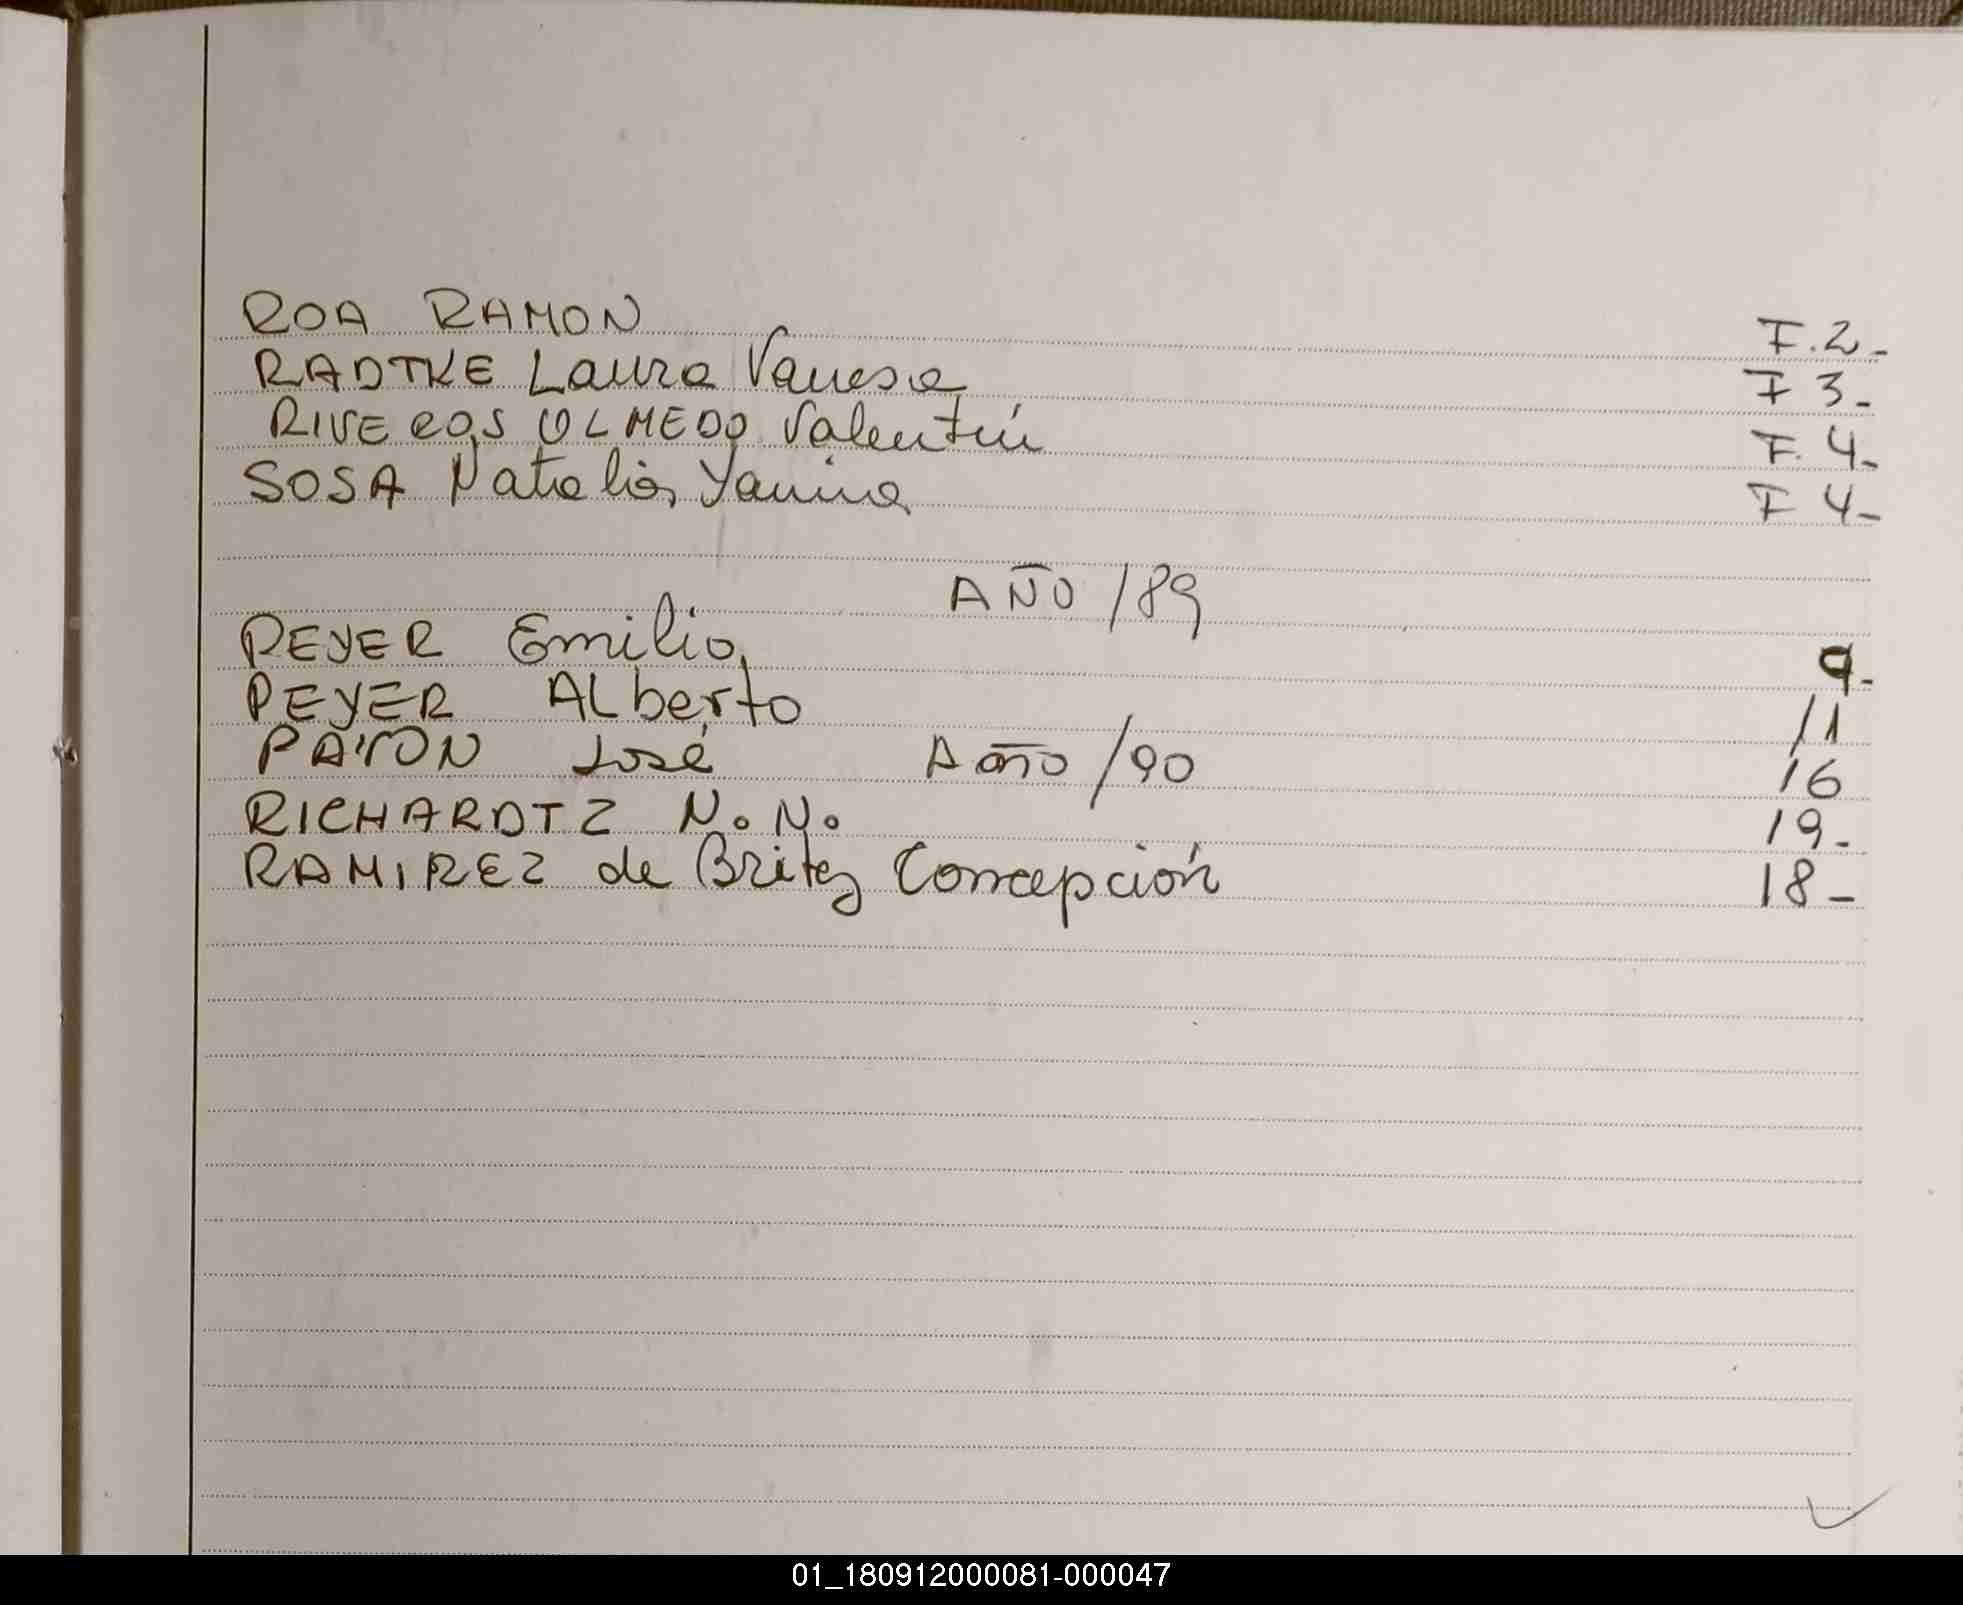 ROA RAMON F. 2-
RADTKE Laura Vanesa F 3-
RIVEROS OLMEDO Valentín F. 4-
SOSA Natalia Yanina F 4-
AÑO /89
PEYER Emilio 9-
PEYER ALberto 11
José AÑO /90 16
RICHARDTZ N. N. 19-
RAMIREZ de Britez Concepción 18-
01_180912000081-000047